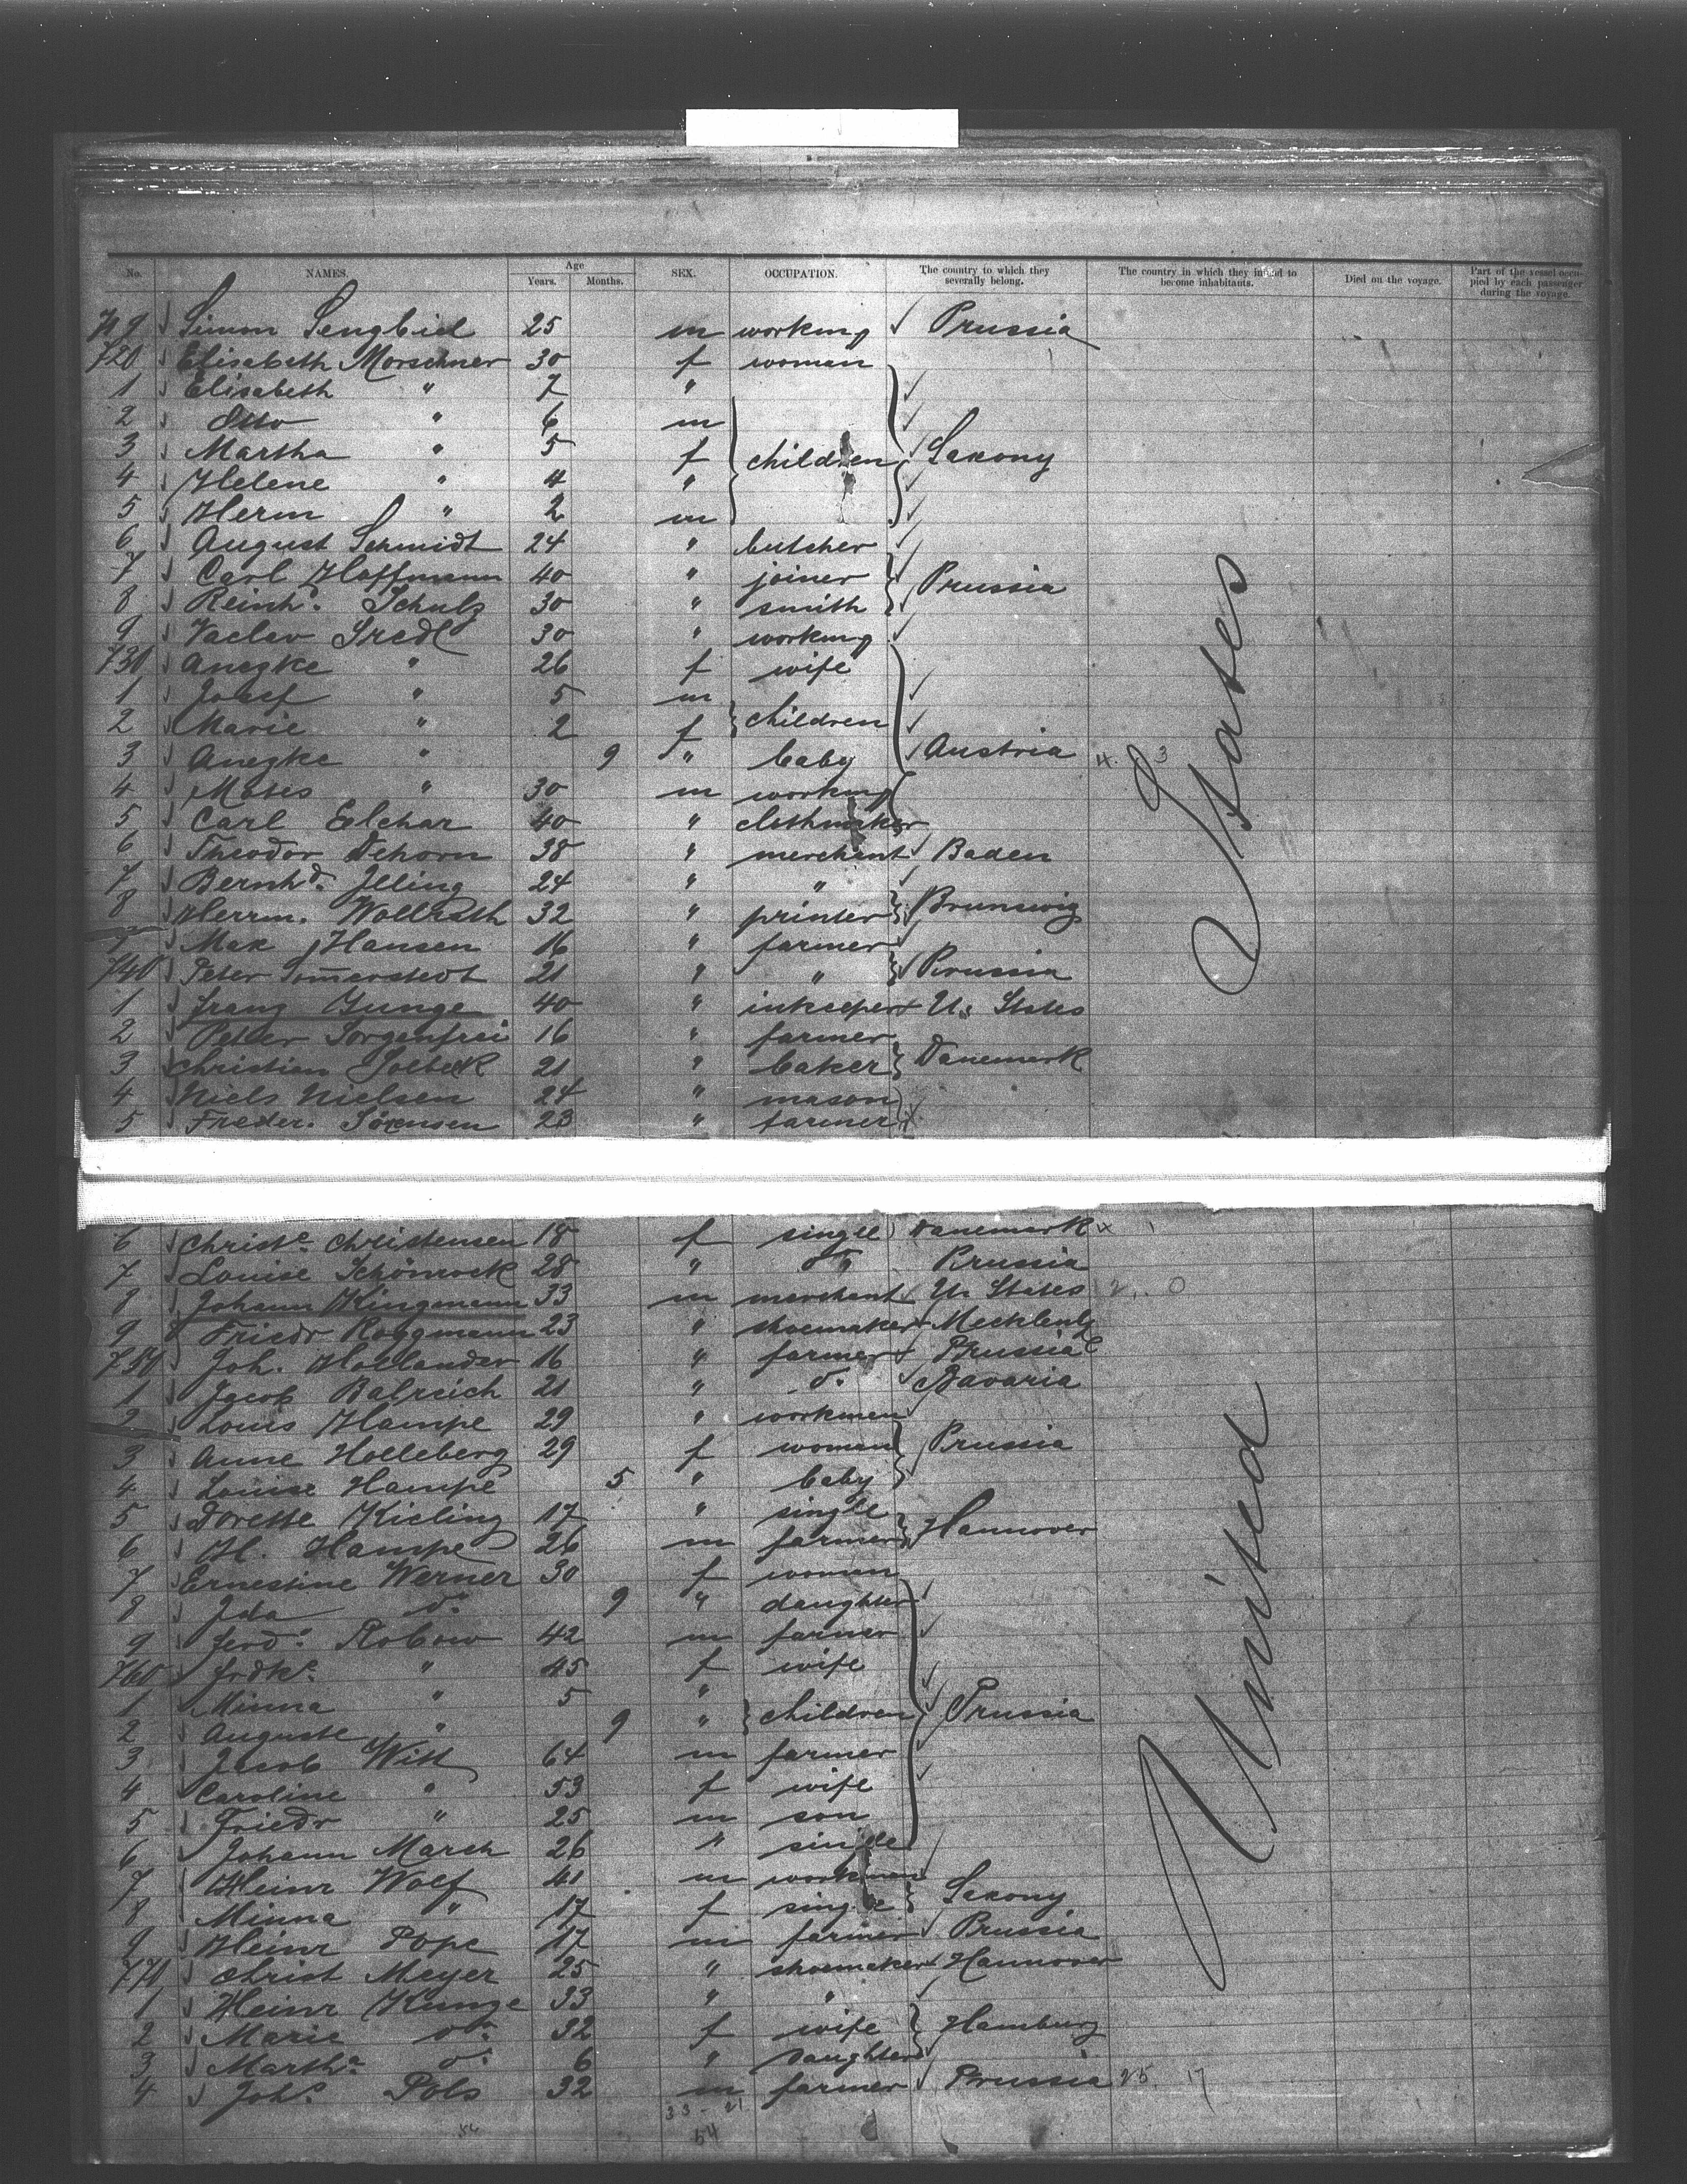 No. NAMES. Age Years. Months. SEX. OCCUPATION. The country to which they severally belong. The country in which they intend to become inhabitants. Died on the voyage. Part of the vessel occupied by each passenger during the voyage.
719 Simon Sengbiel 25 m working Prussia
720 Elisabeth Morschner 30 f woman
1 Elisabeth " 7 "
2 Otto " 6 m
3 Martha " 5 f children Saxony
4 Helene " 4 "
5 Herm " 2 m
6 August Schmidt 24 " butcher
7 Carl Hoffmann 40 " joiner Prussia
8 Reinhd. Schulz 30 " smith
9 Vaclav Sredl 30 " working
730 Anezke " 26 f wife
1 Josef " 5 m
2 Marie " 2 f children
3 Anezke " 9 " baby Austria 4. 3
4 Mates " 30 m working
5 Carl Elchar 40 " clothmaker
6 Theodor Dehorn 38 " merchant Baden
7 Bernhd. Illing 24 " "
8 Herrm. Wollrath 32 " printer Brunswig
9 Max Hansen 16 " farmer
740 Peter Tomerstedt 21 " " Prussia
1 Franz Gunge 40 " inkeeper U. States
2 Peter Sorgenfrei 16 " farmer
3 Christian Solbeck 21 " baker Danemark
4 Niels Nielsen 24 " mason
5 Freder. Sörensen 23 " farmer
6 Christe. Christensen 18 f single Danemark
7 Louise Schönrock 28 " do " Prussia
8 Johann Klingmann 33 m merchant U. States 2. 0
9 Friedr Roggmann 23 " shoemaker Mecklenbg
750 Joh. Hollander 16 " farmer Prussia
1 Jacob Balreich 21 " do. Bavaria
2 Louis Hampe 29 " workmen
3 Anne Holleberg 29 f woman Prussia
4 Louise Hampe 5 " baby
5 Dorette Kieling 17 " single
6 H. Hampe 26 m farmer Hannover
7 Ernestine Werner 30 f woman
8 Ida do. 9 " daughter
9 Ferd. Robow 42 m farmer
760 Frdke. " 45 f wife
1 Minna " 5 "
2 Auguste " 9 " children Prussia
3 Jacob Witt 64 m farmer
4 Caroline " 53 f wife
5 Friedr " 25 m son
6 Johann March 26 " single
7 Heinr Wolf 41 m workman
8 Minna " 17 f single Saxony
9 Heinr Pope 17 m farmer Prussia
770 Christ Meyer 25 " shoemaker Hannover
1 Heinr Kunze 33 " "
2 Marie do. 32 f wife Hamburg
3 Martha do. 6 " daughter
4 Johs. Pols 32 m farmer Prussia 25. 17
33 - 21
54
United States